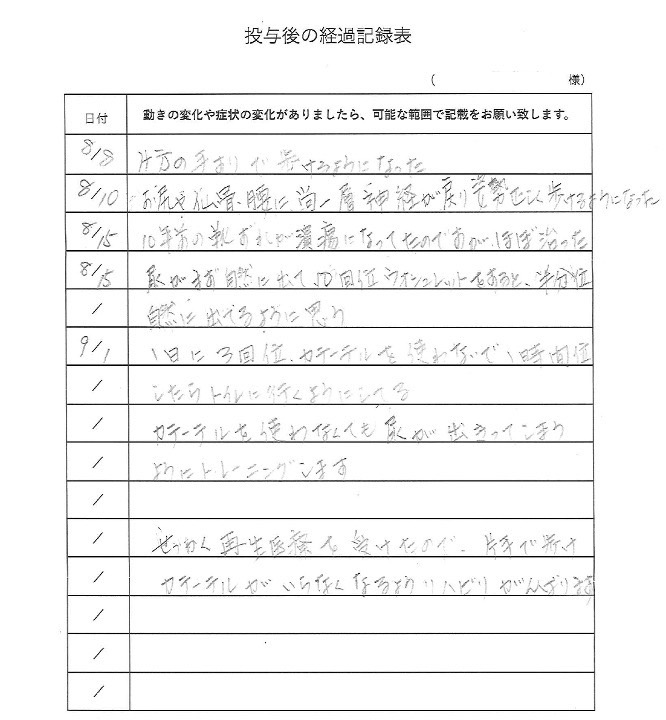 投与後の経過記録表
( 様)
日付 動きの変化や症状の変化がありましたら、可能な範囲で記載をお願い致します。
8/8 片方の手すりで歩けるようになった
8/10 お尻や仙骨、腰に尚一層神経が戻り姿勢正しく歩けるようになった
8/15 10年前の靴ずれが潰瘍になってたのですが、ほぼ治った
8/15 尿がまず自然に出て 回位ウォシュレットをあると、半分位
/ 自然に出てるように思う
9/1 1日に3回位、カテーテルを使わないで1時間位
/ したらトイレに行くようにしてる
/ カテーテルを使わなくても尿が出きってしまう
/ ようにトレーニングします
/
/ せっかく再生医療を受けたので、片手で歩け
/ カテーテルがいらなくなるようリハビリがんばります
/
/
/